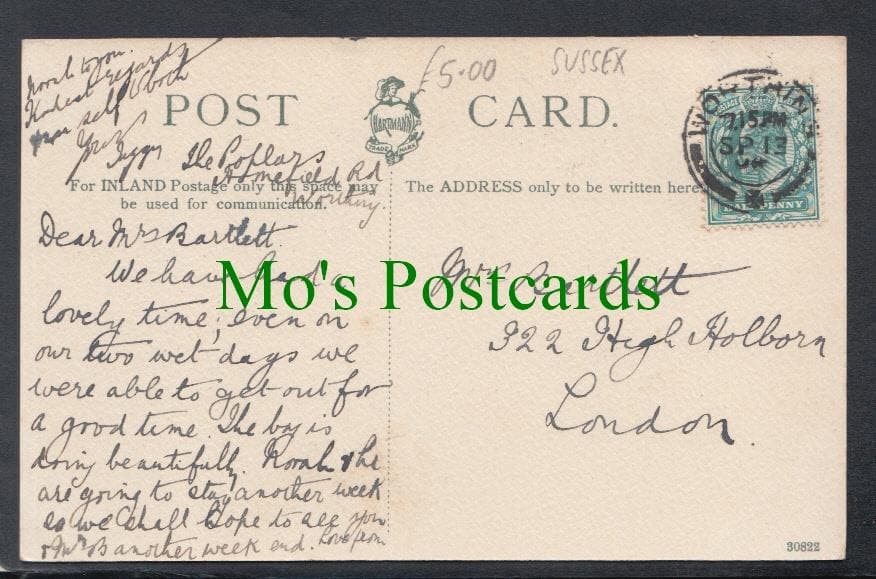 £5.00
SUSSEX
POST CARD.
HARTMANN
TRADE MARK
WORTHING
7.15 PM
SP 13
04
POSTAGE
HALFPENNY
For INLAND Postage only this space may
be used for communication.
The ADDRESS only to be written here.
The Poplars
Homefield Rd
Worthing
Dear Mrs Bartlett.
We have had a
lovely time, even on
our two wet days we
were able to get out for
a good time. The boy is
doing beautifully. Norah & he
are going to stay another week
so we shall hope to see you
& Mr B another week end. Love from
Norah to you.
Kindest regards
Mrs Bartlett
322 High Holborn
London.
Mo's Postcards
30822